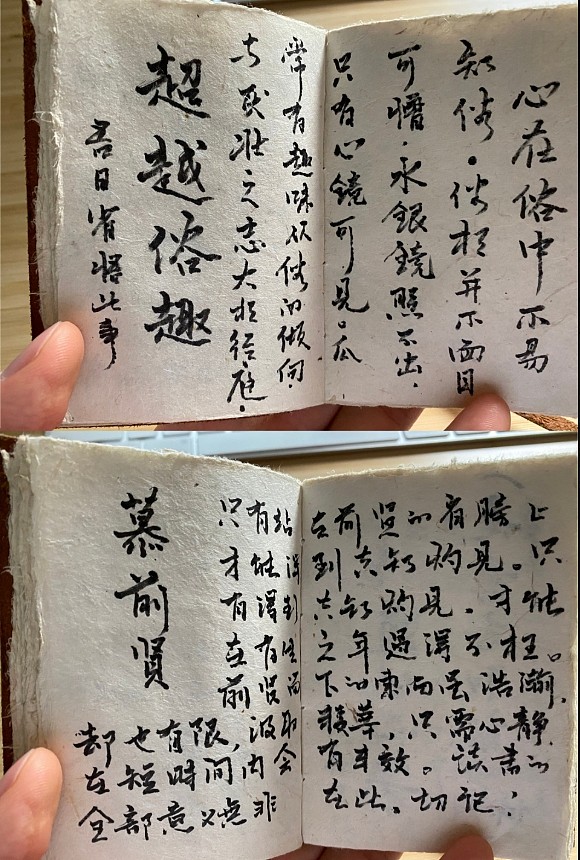 心在俗中不易
知俗。俗相并不面目
可憎。水银镜照不出,
只有心镜可见。
常有趣味从俗的倾向,
与之志大相径庭。
超越俗趣
吾日省悟此事
慕前贤
只有站在前贤的肩膀上
才能得到真知灼见。只
有得到真知灼见。才能
在有生之年过得不枉。
前贤留下的东西虽浩瀚,
却也有限,汲取,只需心静
在短时间内会有奇效。读书的
全部意义在此。切记!